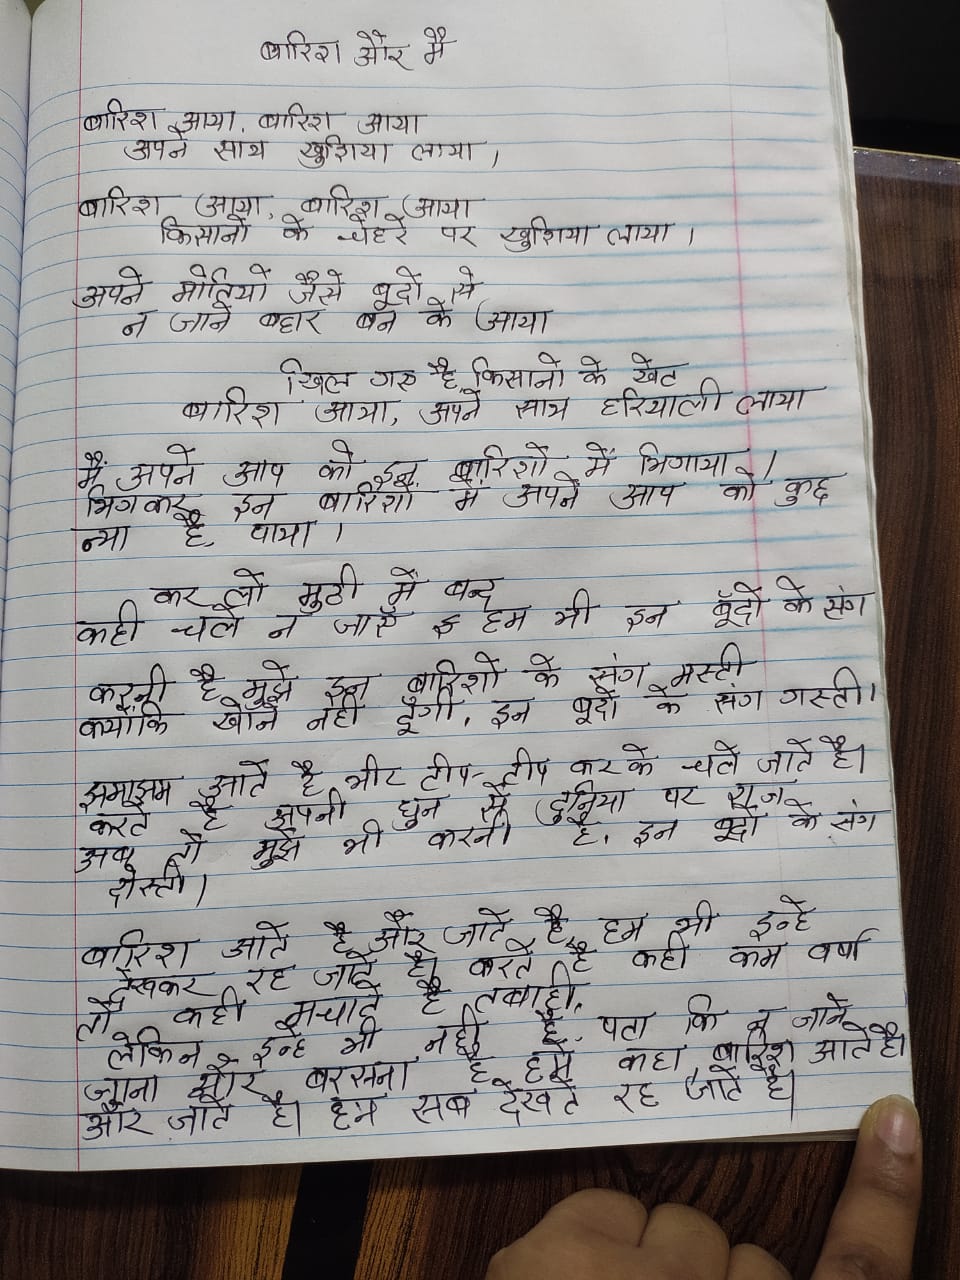 बारिश और मै
बारिश आया, बारिश आया
अपने साथ खुशिया लाया,
बारिश आया, बारिश आया
किसानो के चेहरे पर खुशिया लाया ।
अपने मोतियो जैसे बूदो से
न जाने बहार बन के आया
खिल गए है किसानो के खेत
बारिश आया, अपने साथ हरियाली लाया
मैं अपने आप को इन बारिशों में भिगाया ।
भिगकर इन बारिशों में अपने आप को कुछ
न्या है पाया ।
कर लो मुठी में बन्द
कही चले न जाए हम भी इन बूँदों के संग
करनी है मुझे इन बारिशो के संग मस्ती
क्योकि खोने नही दूंगी, इन बूदो के संग गस्ती।
झमाझम आते है भीर टीप-टीप कर के चले जाते है।
करते है अपनी धुन से दुनिया पर राज
अब तो मुझे भी करनी है, इन बूदों के संग
दोस्ती।
बारिश आते है और जाते है, हम भी इन्हे
देखकर रह जाते है। करते है कही कम वर्षा
तो कही मचाते है तबाही,
लेकिन इन्हे भी नही है पता कि न जाने
जाना और बरसना है हमे कहा, बारिश आते है।
और जाते है। हम सब देखते रह जाते है।